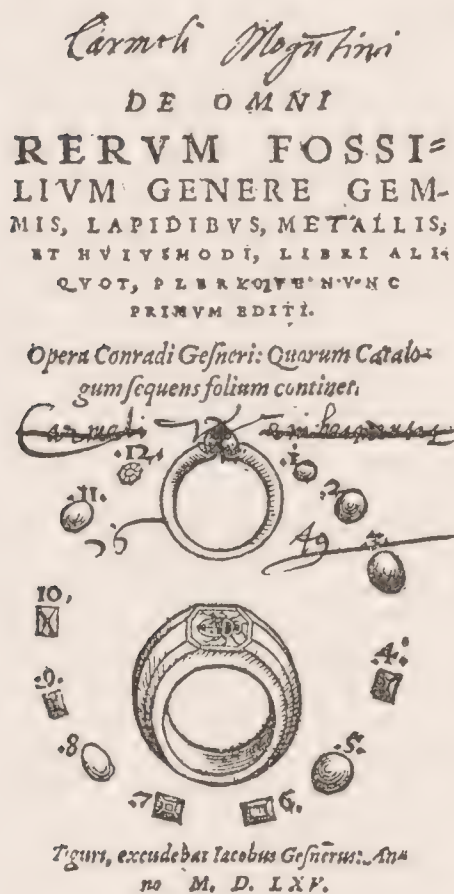 Carmeli Mogūtini
DE OMNI
RERVM FOSSI=
LIVM GENERE GEM-
MIS, LAPIDIBVS, METALLIS,
ET HVIVSMODI, LIBRI ALI-
QVOT, PLERIQVE NVNC
PRIMVM EDITI.
Opera Conradi Gesneri: Quorum Catalo-
gum sequens folium continet.
Carmeli
.12. .1.
.11. .2.
26 49 .3.
10.
.4.
.9.
.8 .5.
.7 6.
Tiguri, excudebat Iacobus Gesnerus: An-
no M. D. LXV.